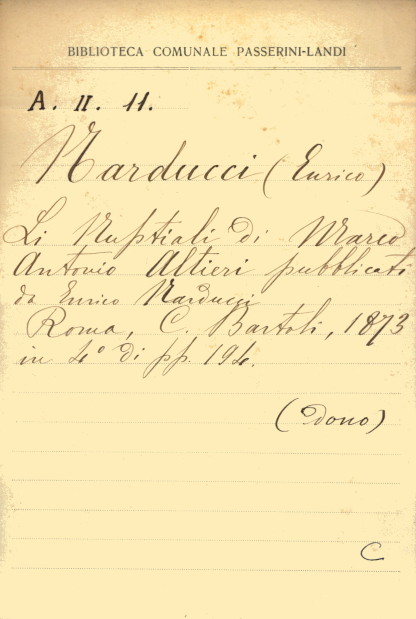 BIBLIOTECA COMUNALE PASSERINI-LANDI
A. II. 11.
Narducci (Enrico)
Li Nuptiali di Marco
Antonio Altieri pubblicati
da Enrico Narducci
Roma, C. Bartoli, 1873
in 4° di pp. 194.
(dono)
C